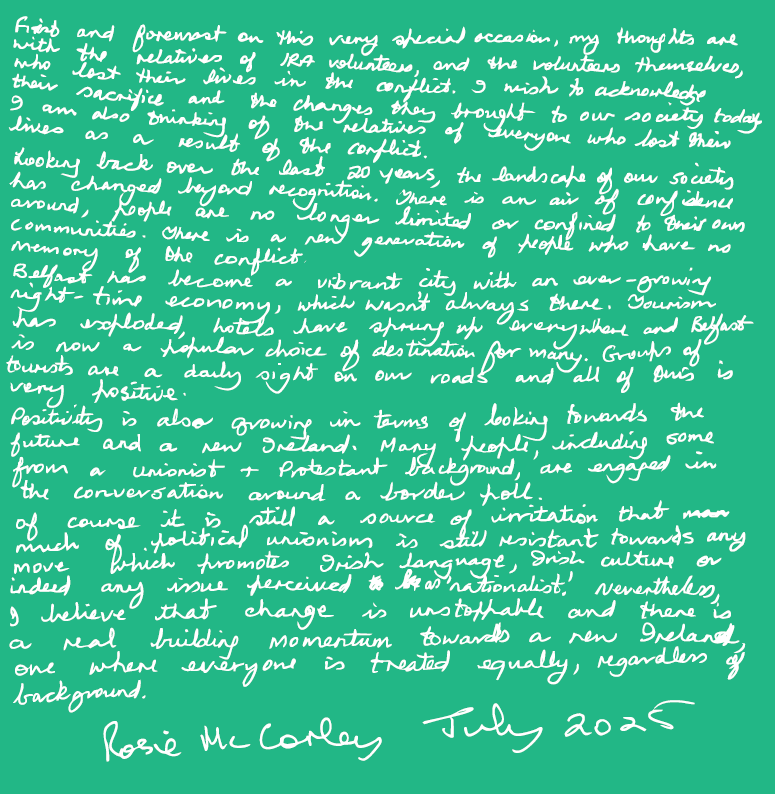 First and foremost on this very special occasion, my thoughts are
with the relatives of IRA volunteers, and the volunteers themselves,
who lost their lives in the conflict. I wish to acknowledge
their sacrifice and the changes they brought to our society today
I am also thinking of the relatives of everyone who lost their
lives as a result of the conflict.
Looking back over the last 20 years, the landscape of our society
has changed beyond recognition. There is an air of confidence
around, people are no longer limited or confined to their own
communities. There is a new generation of people who have no
memory of the conflict.
Belfast has become a vibrant city with an ever-growing
night-time economy, which wasn't always there. Tourism
has exploded, hotels have sprung up everywhere and Belfast
is now a popular choice of destination for many. Groups of
tourists are a daily sight on our roads and all of this is
very positive.
Positivity is also growing in terms of looking towards the
future and a new Ireland. Many people, including some
from a unionist + Protestant background, are engaged in
the conversation around a border poll.
Of course it is still a source of irritation that
much of political unionism is still resistant towards any
move which promotes Irish language, Irish culture or
indeed any issue perceived as 'nationalist'. Nevertheless,
I believe that change is unstoppable and there is
a real building momentum towards a new Ireland,
one where everyone is treated equally, regardless of
background.
Rosie McCorley July 2025